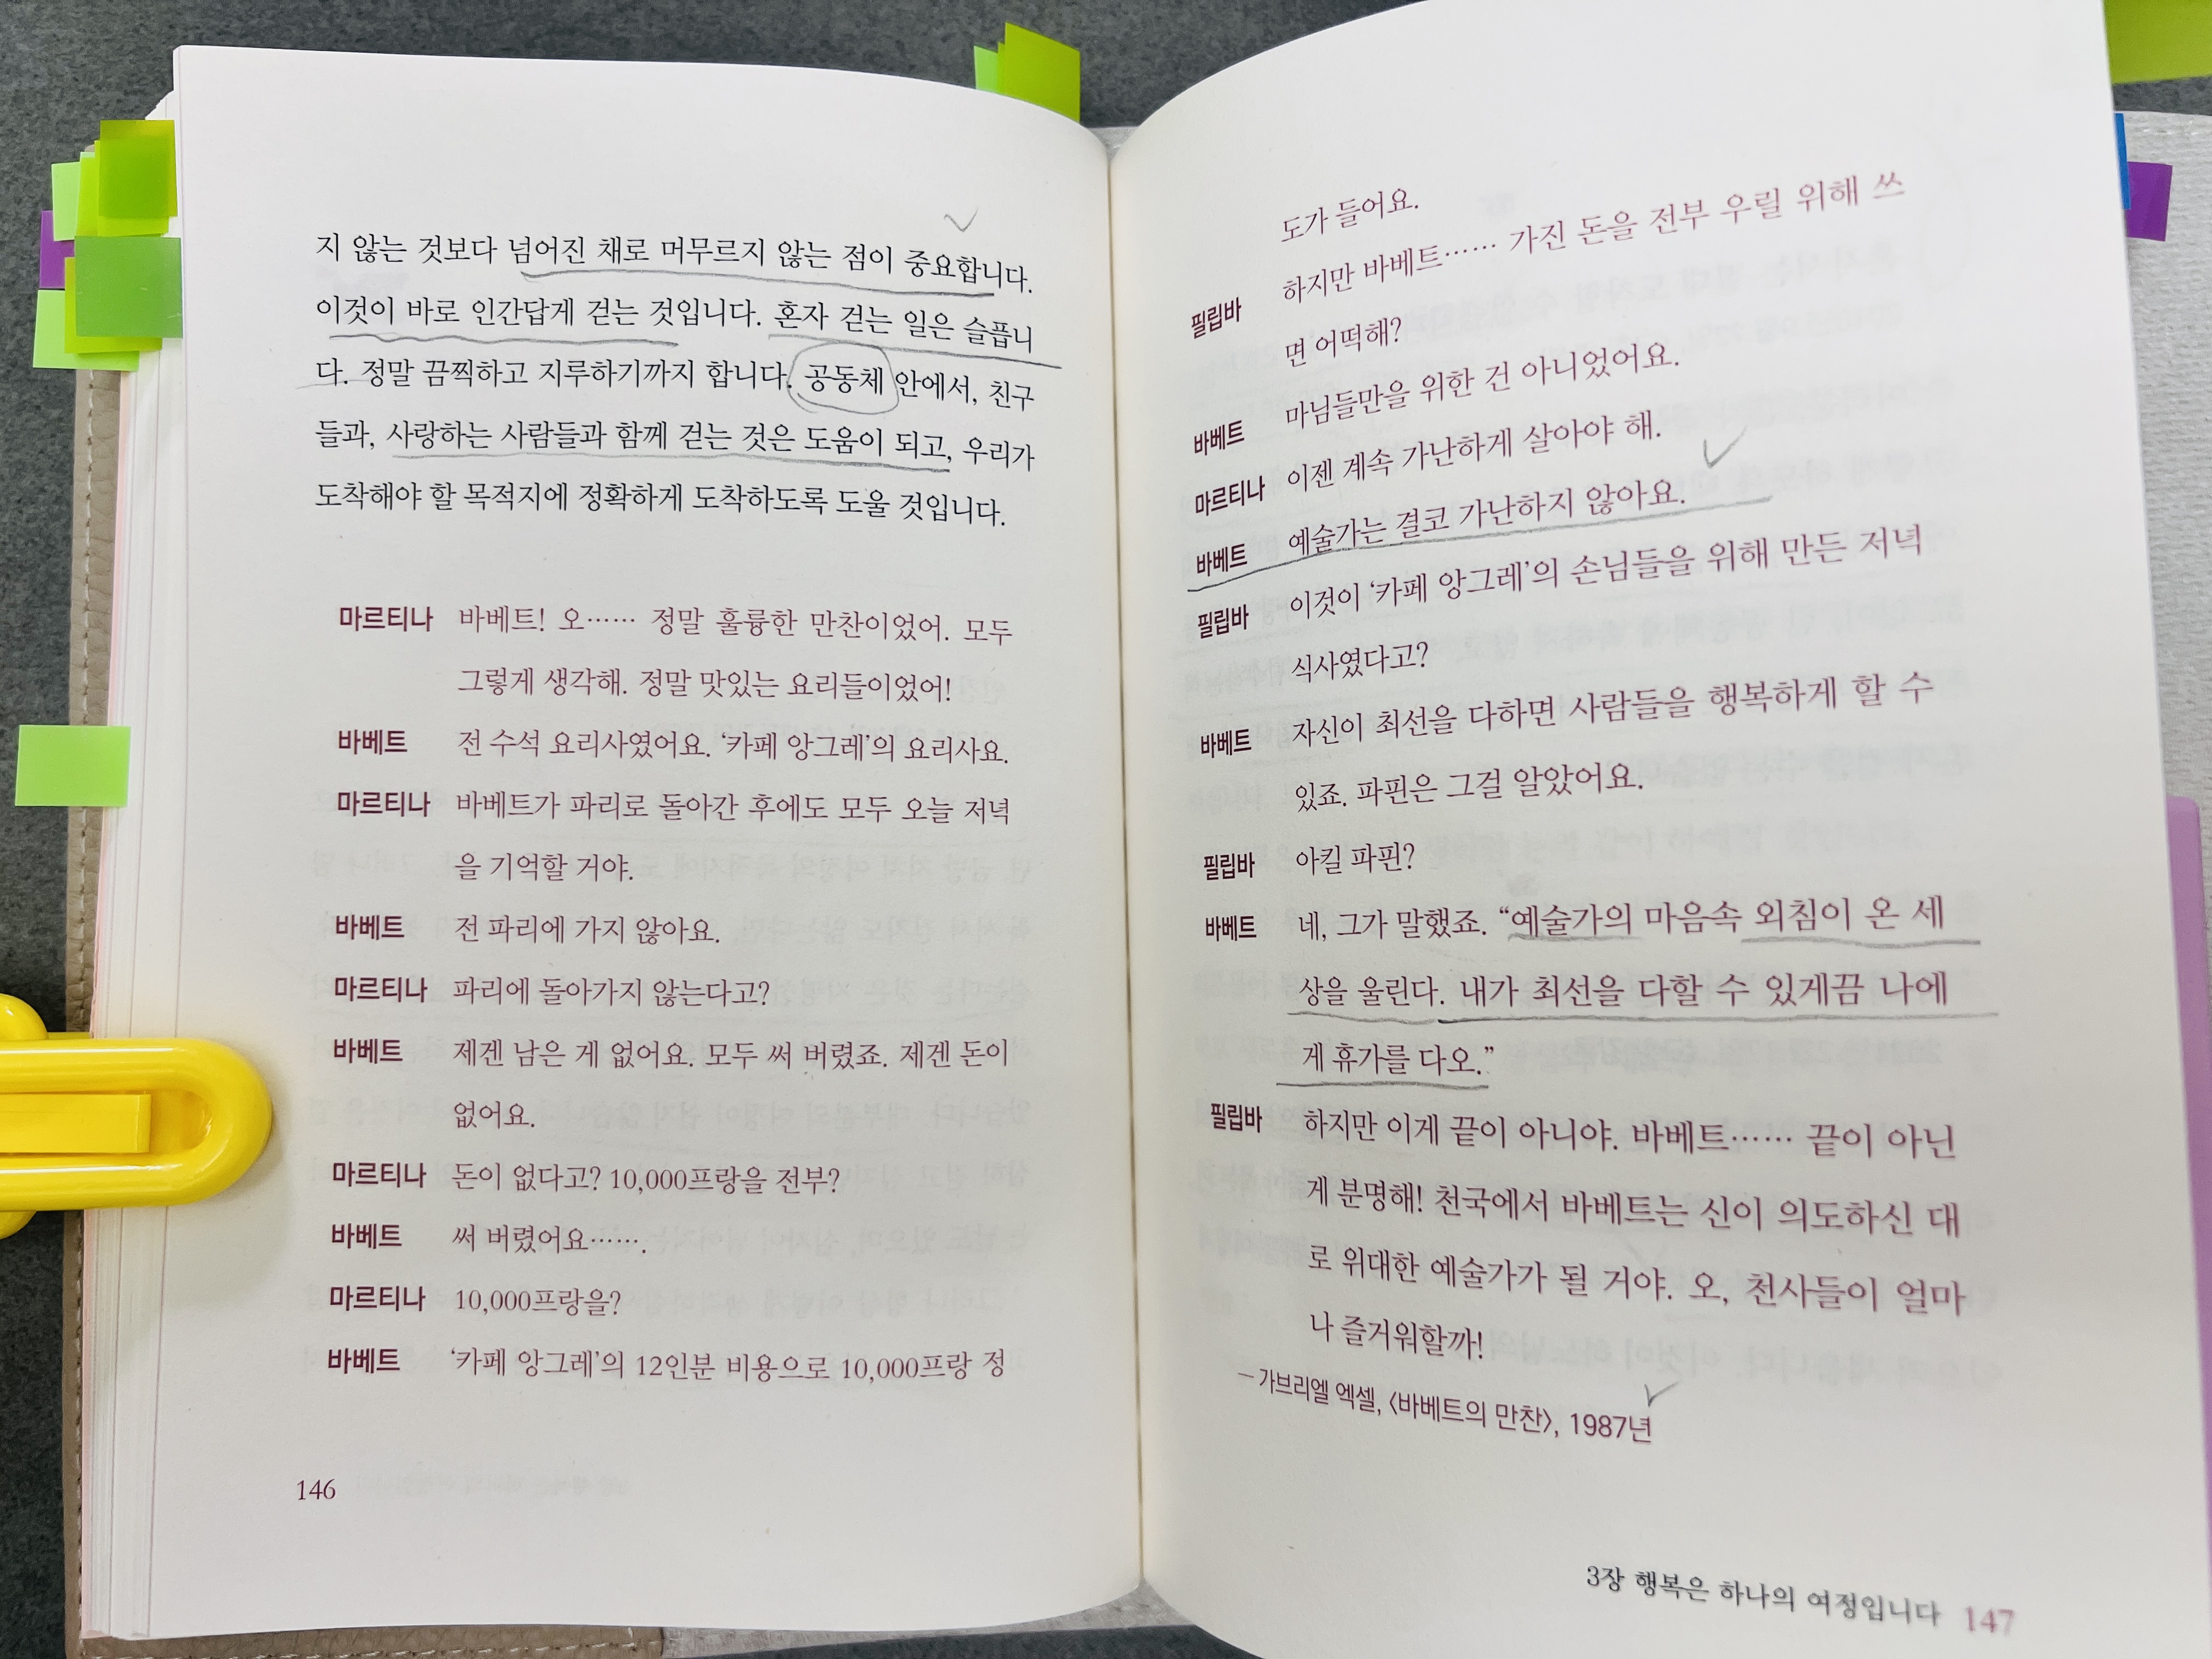 지 않는 것보다 넘어진 채로 머무르지 않는 점이 중요합니다.
이것이 바로 인간답게 걷는 것입니다. 혼자 걷는 일은 슬픕니
다. 정말 끔찍하고 지루하기까지 합니다. 공동체 안에서, 친구
들과, 사랑하는 사람들과 함께 걷는 것은 도움이 되고, 우리가
도착해야 할 목적지에 정확하게 도착하도록 도울 것입니다.
마르티나 바베트! 오…… 정말 훌륭한 만찬이었어. 모두
그렇게 생각해. 정말 맛있는 요리들이었어!
바베트 전 수석 요리사였어요. ‘카페 앙그레’의 요리사요.
마르티나 바베트가 파리로 돌아간 후에도 모두 오늘 저녁
을 기억할 거야.
바베트 전 파리에 가지 않아요.
마르티나 파리에 돌아가지 않는다고?
바베트 제겐 남은 게 없어요. 모두 써 버렸죠. 제겐 돈이
없어요.
마르티나 돈이 없다고? 10,000프랑을 전부?
바베트 써 버렸어요…….
마르티나 10,000프랑을?
바베트 ‘카페 앙그레’의 12인분 비용으로 10,000프랑 정
146
도가 들어요.
필립바 하지만 바베트…… 가진 돈을 전부 우릴 위해 쓰
면 어떡해?
바베트 마님들만을 위한 건 아니었어요.
마르티나 이젠 계속 가난하게 살아야 해.
바베트 예술가는 결코 가난하지 않아요.
필립바 이것이 ‘카페 앙그레’의 손님들을 위해 만든 저녁
식사였다고?
바베트 자신이 최선을 다하면 사람들을 행복하게 할 수
있죠. 파핀은 그걸 알았어요.
필립바 아킬 파핀?
바베트 네, 그가 말했죠. “예술가의 마음속 외침이 온 세
상을 울린다. 내가 최선을 다할 수 있게끔 나에
게 휴가를 다오.”
필립바 하지만 이게 끝이 아니야. 바베트…… 끝이 아닌
게 분명해! 천국에서 바베트는 신이 의도하신 대
로 위대한 예술가가 될 거야. 오, 천사들이 얼마
나 즐거워할까!
– 가브리엘 엑셀, 〈바베트의 만찬〉, 1987년
3장 행복은 하나의 여정입니다 147